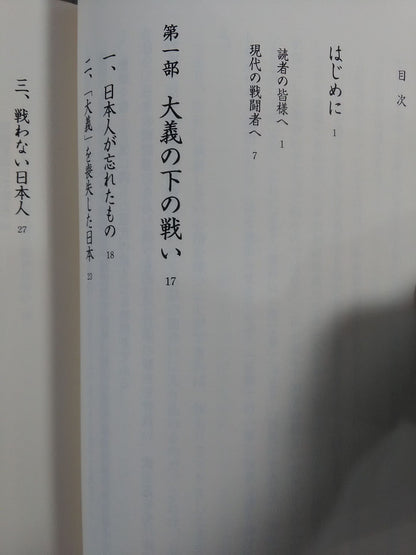 目次
はじめに 1
読者の皆様へ 1
現代の戦闘者へ 7
第一部 大義の下の戦い 17
一、日本人が忘れたもの 18
二、「大義」を喪失した日本 23
三、戦わない日本人 27